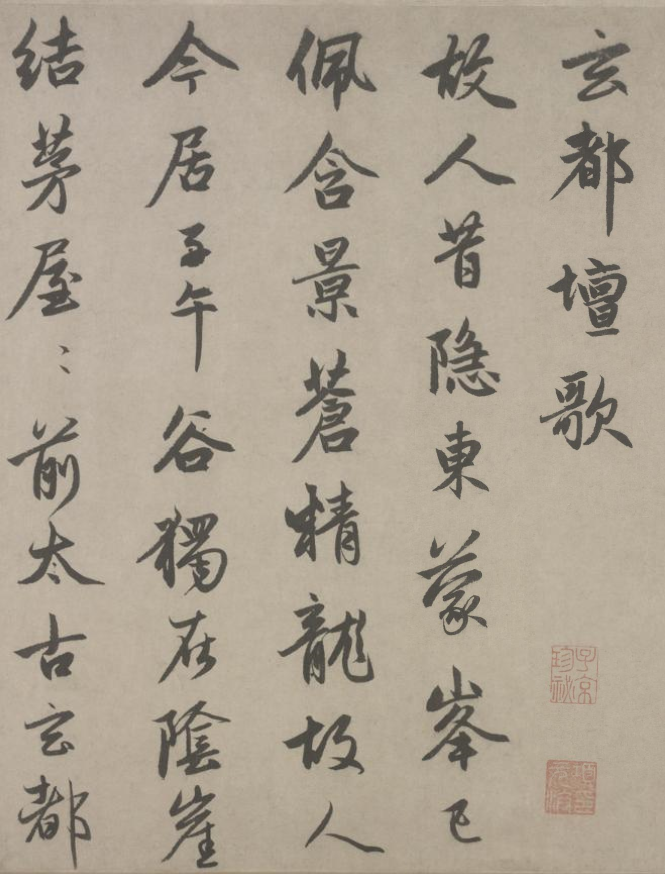 玄都壇歌
故人昔隐東蒙峯已
佩含景蒼精龍故人
今居子午谷獨在陰崖
結茅屋〻前太古玄都
子京珍祕